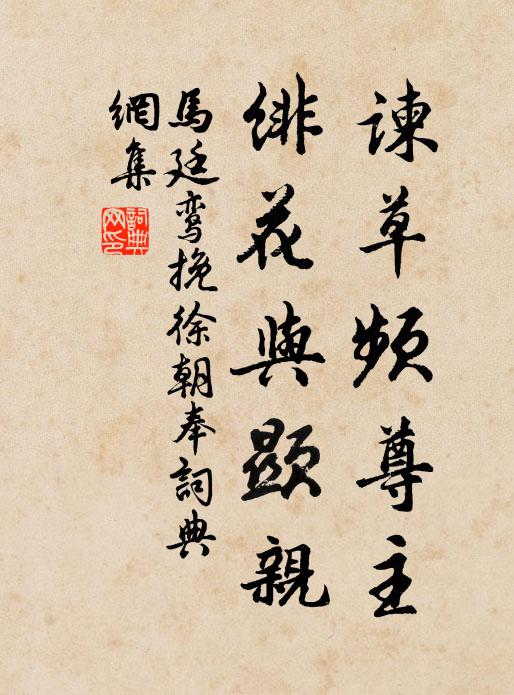 諫草频尊主
緋花與顯親
馬廷鸾挽徐朝奉詞典
網集
詞典
网印